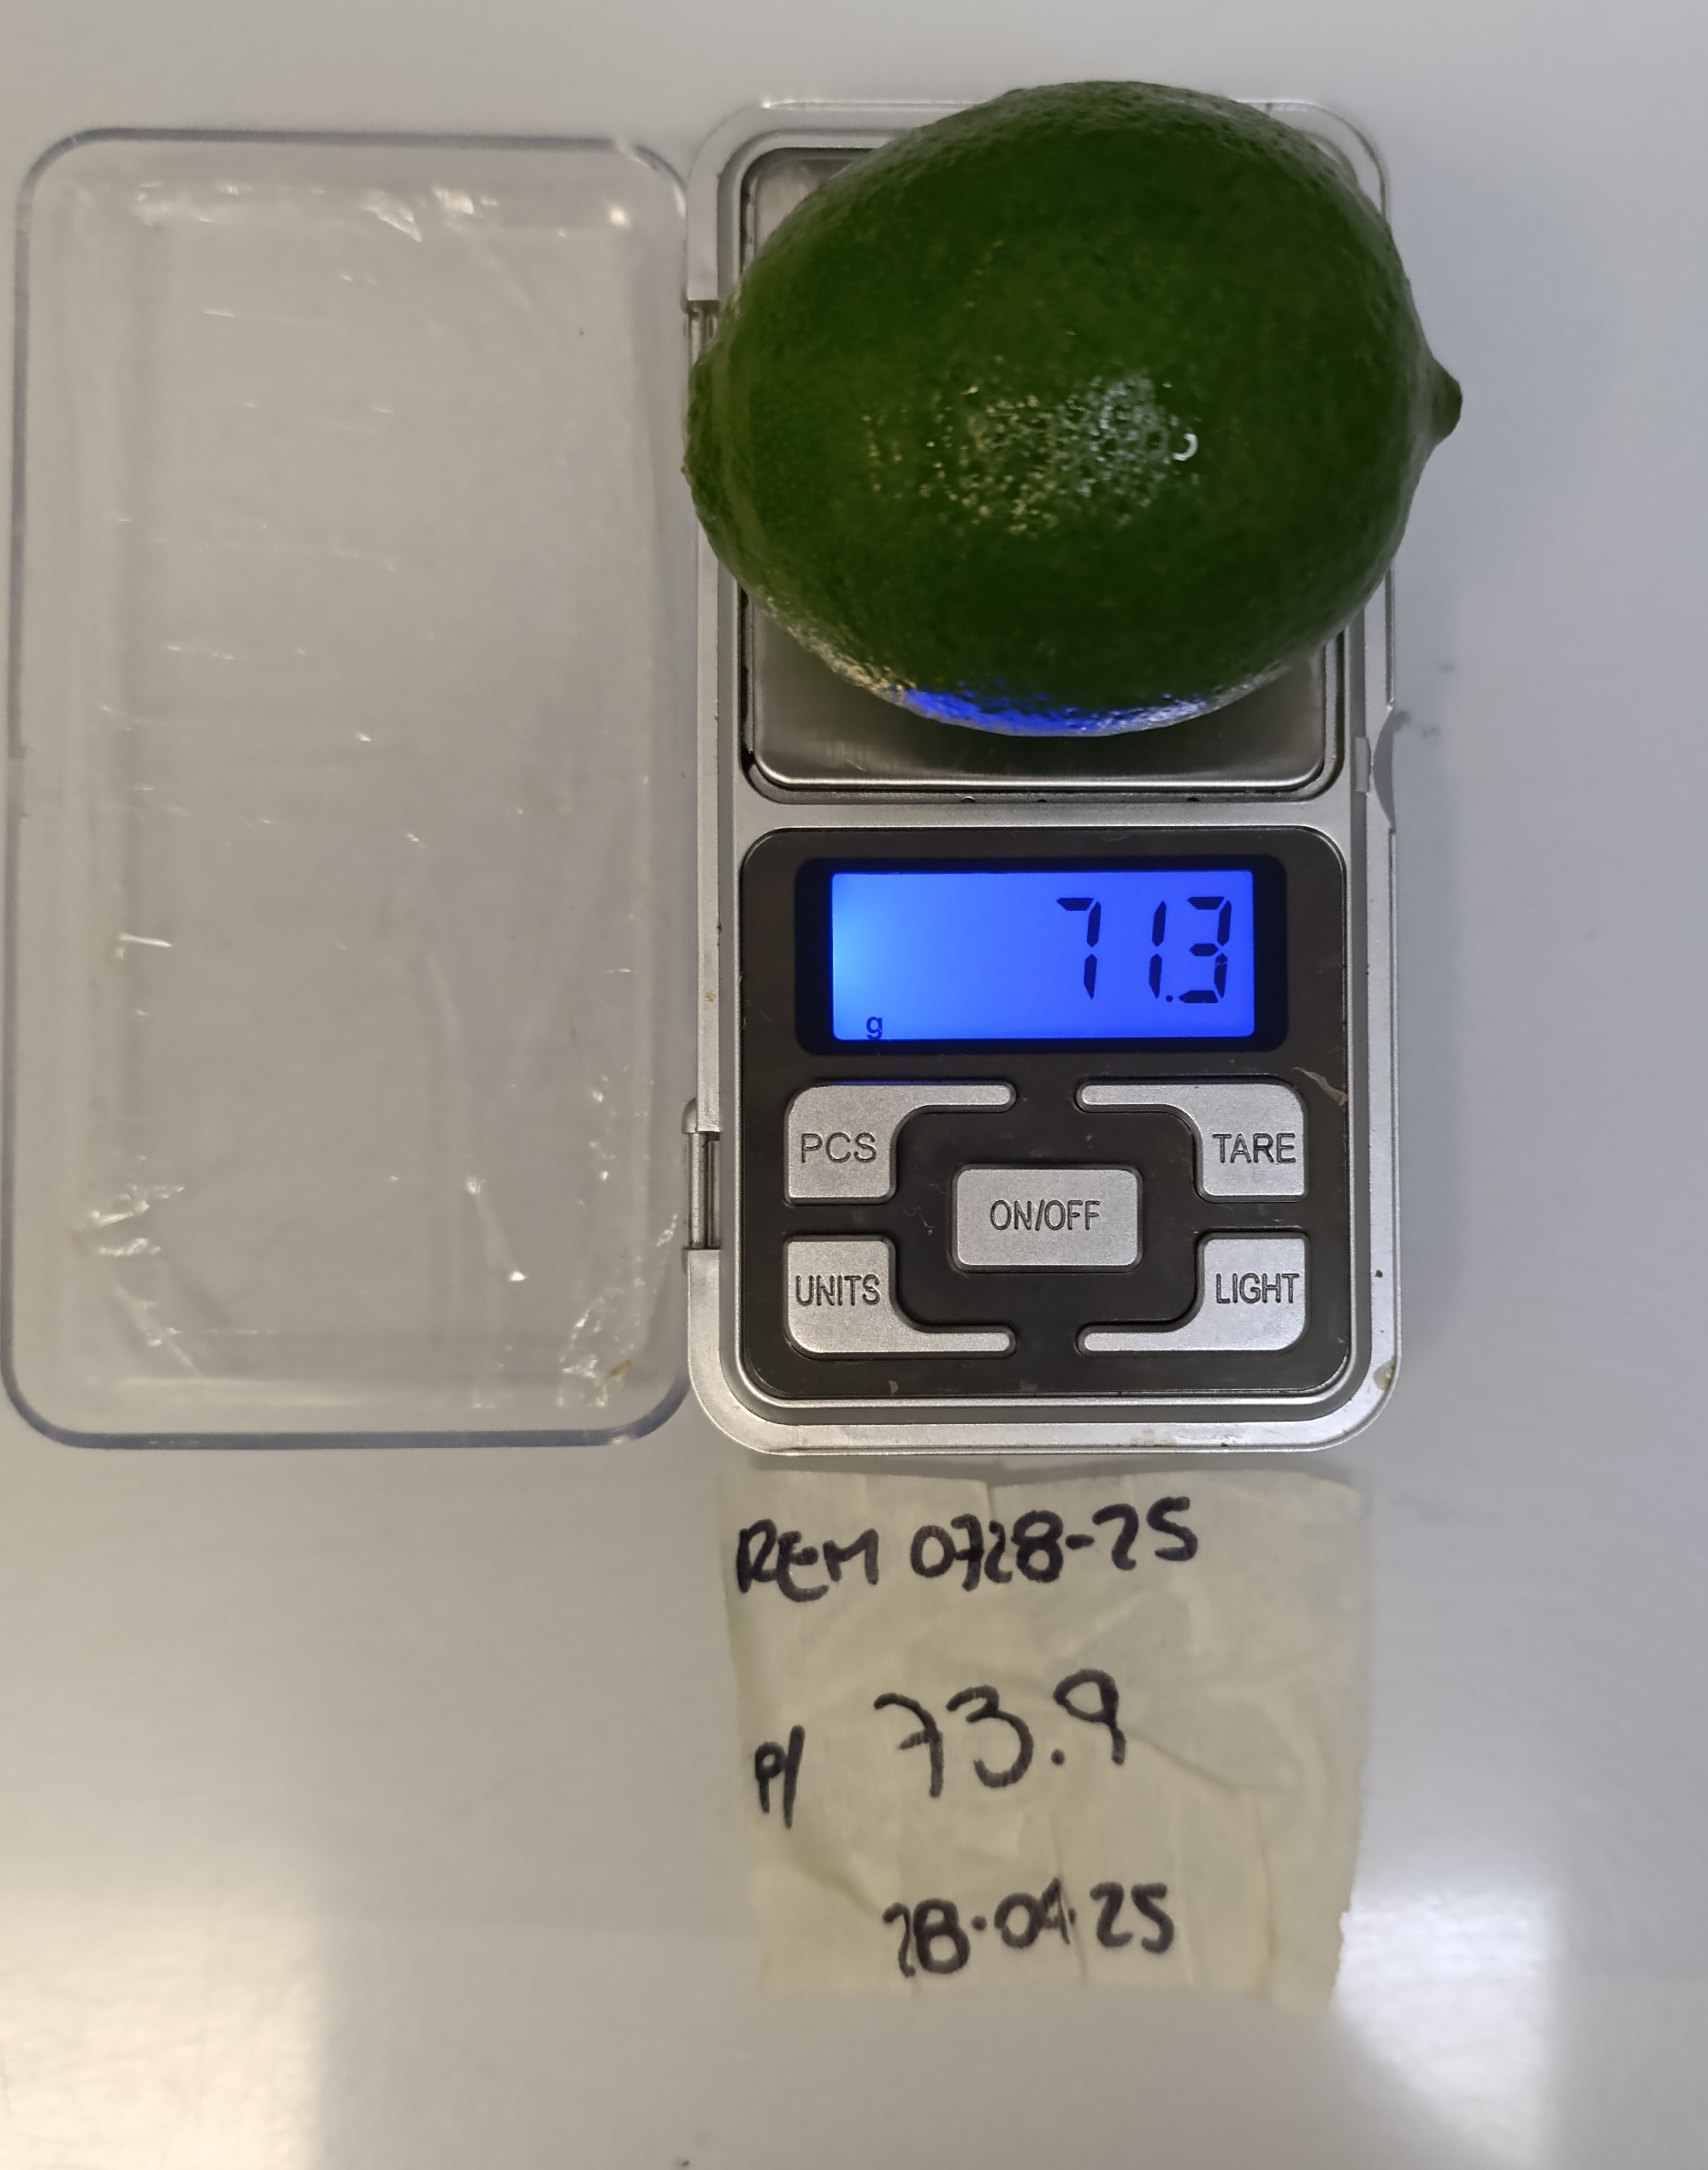 71.3
g
PCS
TARE
ON/OFF
UNITS
LIGHT
REM 0728-25
P/ 73.9
28.04.25